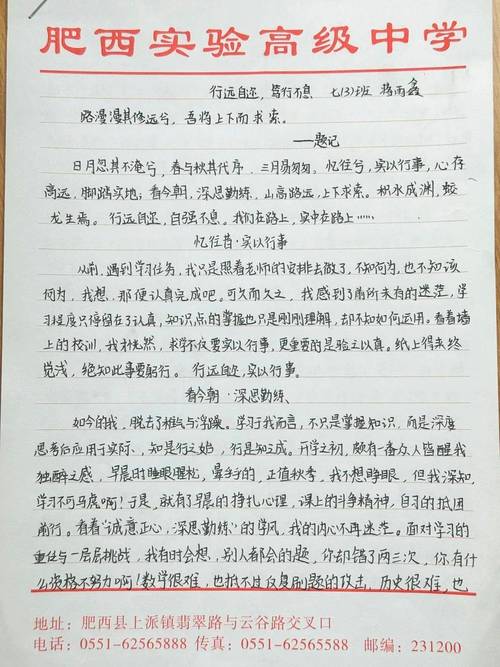 肥西实验高级中学
行远自迩，笃行不息 七(3)班 梅雨鑫
路漫漫其修远兮，吾将上下而求索。
——题记
日月忽其不淹兮，春与秋其代序，三月易匆匆。忆往兮，实以行事，心存
高远，脚踏实地；看今朝，深思勤练，山高路远，上下求索。积水成渊，蛟
龙生焉。行远自迩，自强不息。我们在路上，实中在路上……
忆往昔·实以行事
从前，遇到学习任务，我只是照着老师的安排去做了，不知何为，也不知该
何为，我想，那便认真完成吧。可久而久之，我感到了前所未有的迷茫，学
习程度只停留在了认真，知识点的掌握也只是刚刚理解，却不知如何运用。看看墙
上的校训，我才恍然，求学不仅要实以行事，更重要的是验之以真。纸上得来终
觉浅，绝知此事要躬行。行远自迩，实以行事。
看今朝·深思勤练、
如今的我，脱去了稚气与浮躁。学习于我而言，不只是掌握知识，而是深度
思考后应用于实际、，知是行之始，行是知之成。开学之初，颇有一番众人皆醒我
独醉之感，早晨的睡眼惺忪，晕乎乎的，正值秋季，我不想睁眼，但我深知，
学习不可马虎啊！于是，就有了早晨的挣扎心理，课上的斗争精神，自习的抵团
前行。看着“诚意正心，深思勤练”的学风，我的内心不再迷茫。面对学习的
重任与一层层挑战，我有时会想，别人都会的题，你却错了两三次，你有什
么资格不努力啊！数学很难，也抵不过反复刷题的攻击，历史很难，也
地址：肥西县上派镇翡翠路与云谷路交叉口
电话：0551-62565888 传真：0551-62565588 邮编：231200